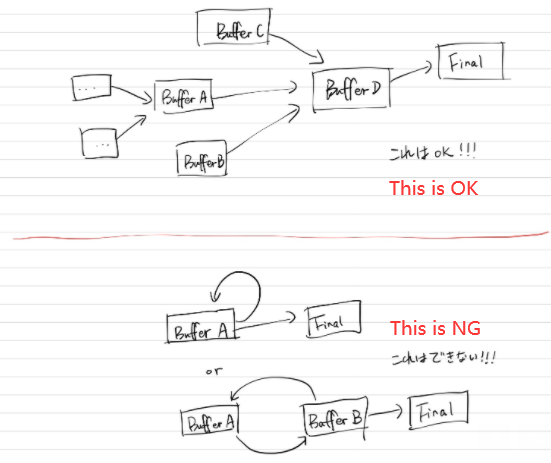 Buffer C
Final
...
Buffer A
Buffer D
...
Buffer B
これはOK!!!
This is OK
Buffer A
Final
This is NG
これはできない!!!
or
Buffer A
Buffer B
Final